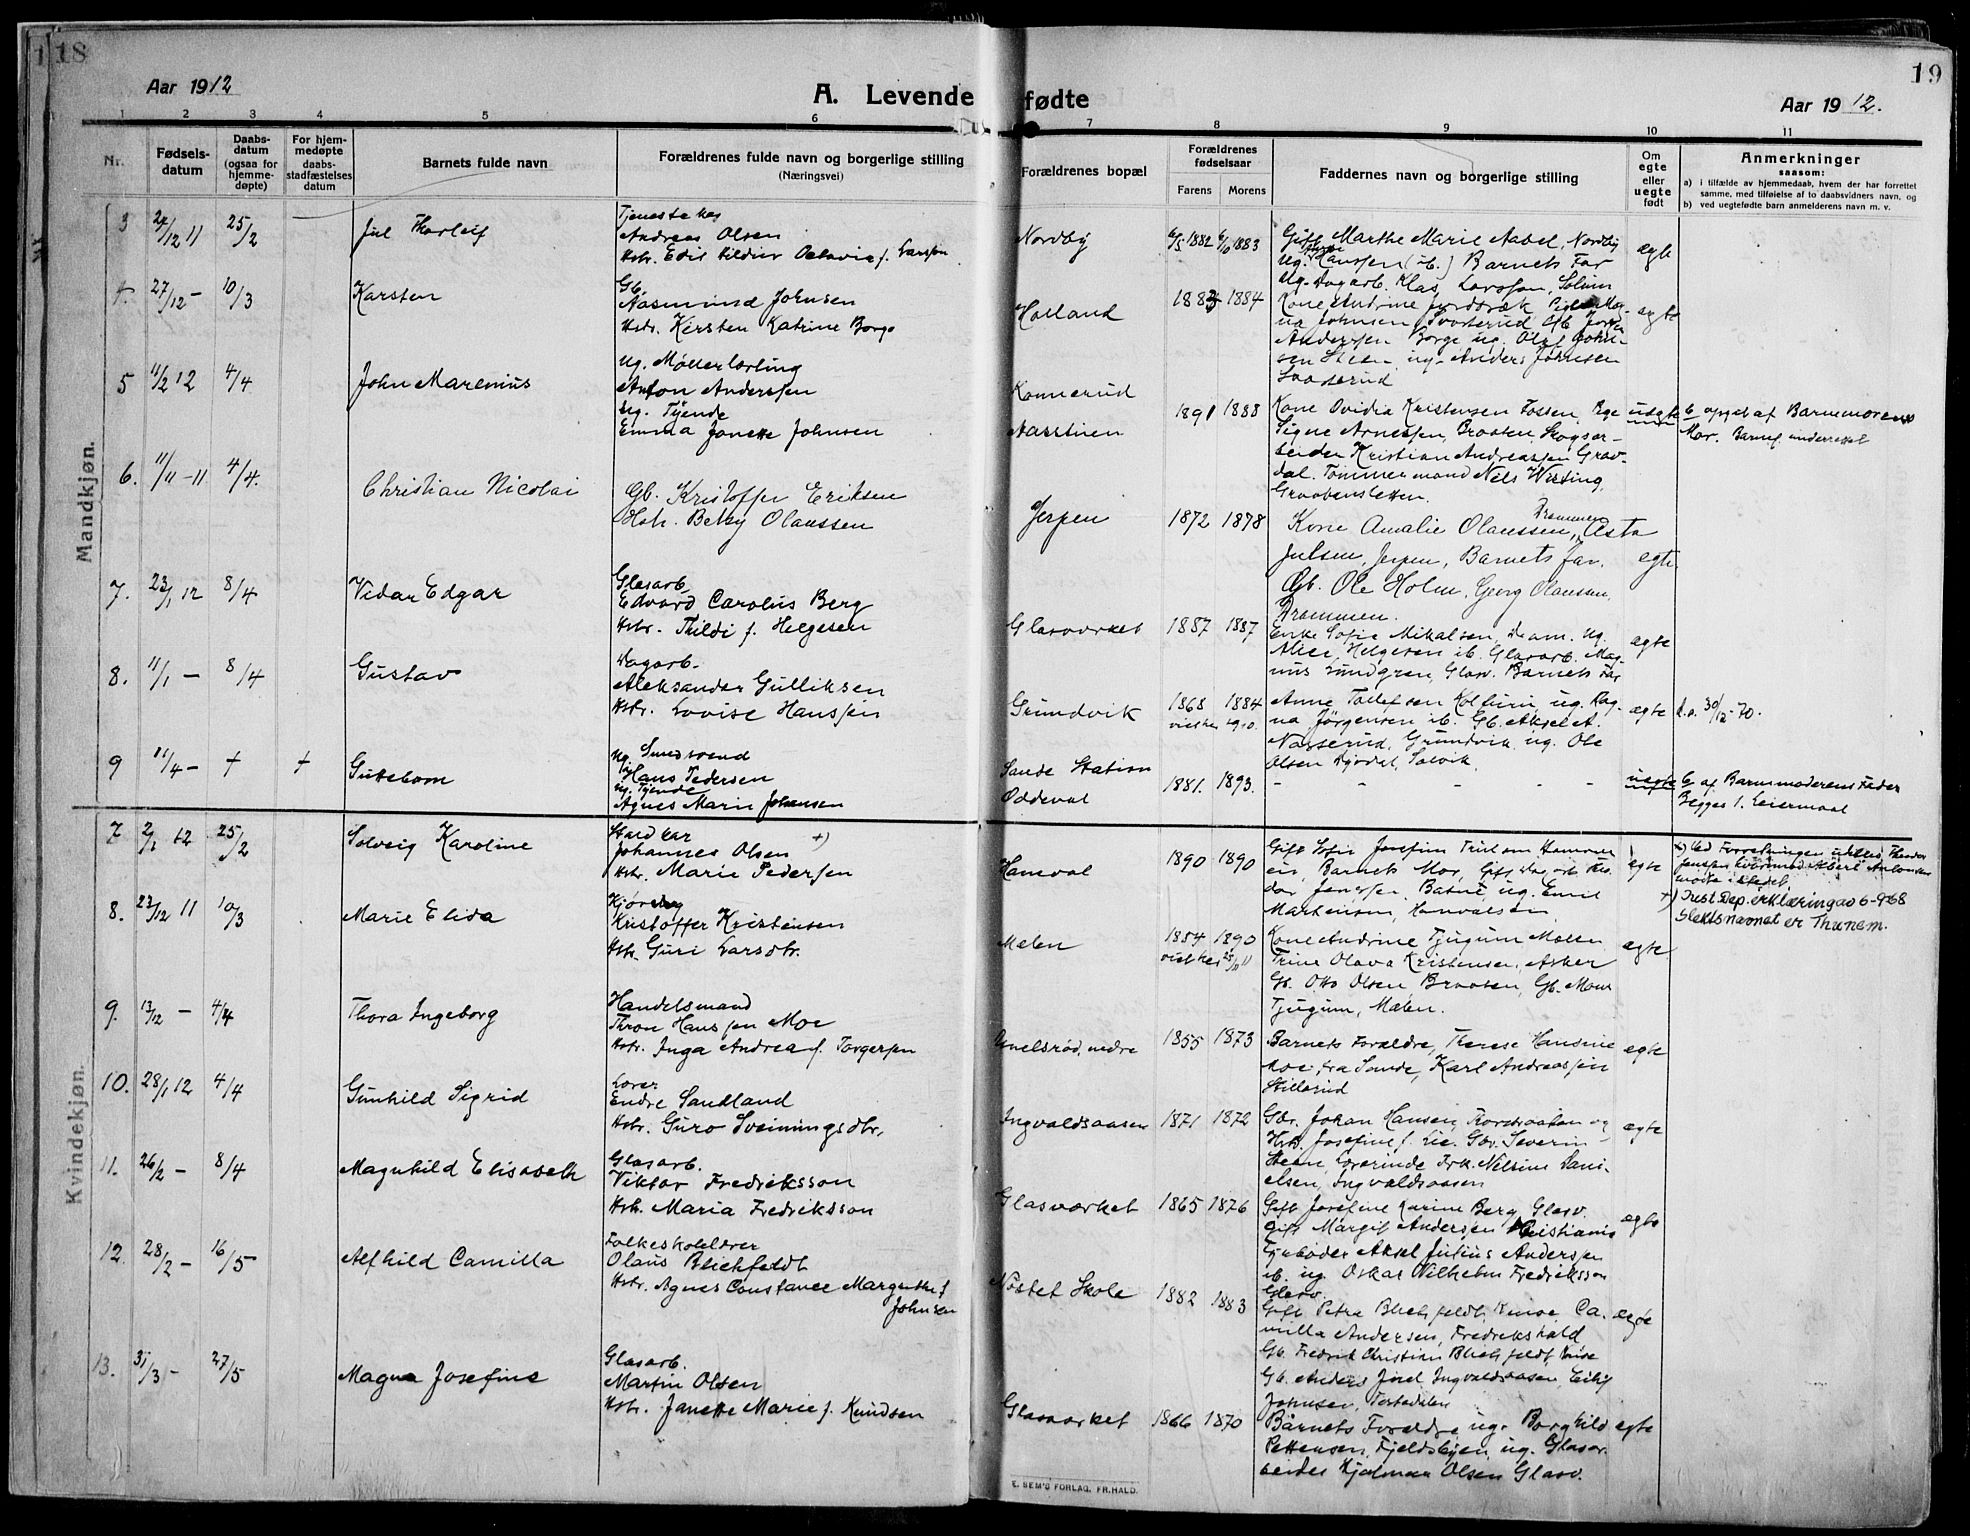 18
19
Aar 1912
A. Levende fødte
Aar 1912.
1 2 3 4 5 6 7 8 9 10 11
Nr.
Fødsels-
datum
Daabs-
datum
(ogsaa for
hjemme-
døpte)
For hjem-
medøpte
daabs-
stadfæstelses
datum
Barnets fulde navn
Forældrenes fulde navn og borgerlige stilling
(Næringsvei)
Forældrenes bopæl
Forældrenes
fødselsaar
Farens Morens
Faddernes navn og borgerlige stilling
Om
egte
eller
uegte
født
Anmerkninger
saasom:
a) i tilfælde av hjemmedaab, hvem der har forrettet
samme, med tilføielse af to daabsvidners navn, og
b) ved uegtefødte barn anmelderens navn m. v.
Mandkjøn.
3 27/12 11 25/2 Jul Thorleif
Andreas Olsen
Nordby 6/5 1882 6/10 1883
Gift Marthe Marie Aabel, Nordby
Hanssen (ib.) Barnets Far
egte
4. 27/12 – 10/3 Karsten
Gb.
Aasmund Johnsen
Hstr. Kirsten Katrine Borge
Holland 1883 1884
egte
5 11/2 12 4/4 John Marenius
ug. Møllerlærling
Anton Anderssen
ug. Tjende
Emma Janette Johnsen
Konnerud
Aasstuen
1891 1888
Kone Ovidia Kristensen Fossen, Pige
Signe Arnessen, Braaten, Skogsar-
beider Kristian Andreassen Grav-
dal. Tømmermand Nels Wirting,
Graabensletten.
uegte
b opgit af Barnemorens
Mor. Barnef. underrettet
6. 11/11 –11 4/4. Christian Nicolai
Gb. Kristoffer Eriksen
Hstr. Betsy Olaussen
Jerpen 1872 1878
Kone Amalie Olaussen, Drammen, Asta
Julsen, Jerpen, Barnets Far.
Gb. Ole Holm, Georg Olaussen,
Drammen.
egte
7. 23/1 12 8/4 Vidar Edgar
Glasarb.
Edvard Carolus Berg
Hstr. Thildi f. Helgesen
Glasværket 1887 1887
Enke Sofie Mikalsen, Dram. ug.
Alice Helgesen ib. Glasarb. Mag-
nus Lundgren, Glasv. Barnets Far
egte
8. 11/1 – 8/4 Gustav
Dagarb.
Aleksander Gulliksen
Hstr. Lovise Hanssen
Grundvik 1868 1884
viet her 1910.
Anne Tollefsen Kolbum, ug. Rag-
na Jørgensen ib. Gb. Aksel A.
Nasserud, Grundvik, ug. Ole
Olsen Solvik.
egte
d.a. 30/12 – 70.
9 11/4 – + + Guttebarn
ug. Smedsvend
Hans Pedersen
ug. Tjende
Agnes Marie Johansen
Sande Station
Oddeval
1881. 1893.
– – – – –
uegte
b af Barnemoderens Fader
Begges 1. Leiermaal
Kvindekjøn.
7 2/1 12 25/2 Solveig Karoline
Johannes Olsen +)
Hstr. Marie Pedersen
Haneval 1890 1890
egte
x) Ved Forretningen
+) Just. Dep. erklæring av 6-9-68
Slektsnavnet er Thunem.
8. 23/12 11 10/3 Marie Elida
Kristoffer Kristensen
Hstr. Guri Larsdtr.
Mælen 1854 1890
viet her 25/11 11
Kone Andrine Tjugum Mælen
Trine Olava Kristensen, Asker
Gb. Otto Olsen Braasen, Gb.
Tjugum, Mælen.
egte
9. 13/12 – 4/4 Thora Ingeborg
Handelsmand
Thron Hanssen Moe
Hstr. Inga Andrea f. Torgersen
nedre 1855 1873
Barnets Forældre, Therese Hansine
Moe, fra Sande, Karl Andreassen
Stillerud
egte
10. 28/1 12 4/4 Gunhild Sigrid
Lærer
Endre Sandland
Hstr. Guro Sveinungsdtr.
Ingvaldsaasen 1871 1872
Gbr. Johan Hansen, og
Hstr. Josefine f. Lie. Gbr. Severin
Steen, Lærerinde Frk. Nelsine Dani-
elsen, Ingvaldsaasen
egte
11. 26/2 – 8/4 Magnhild Elisabeth
Glasarb.
Viktor Fredriksson
Hstr. Maria Fredriksson
Glasværket 1865 1876
Gift Josefine Karine Berg, Glasv.
Gift Margit Andersen Kristiania
Aksel Julius Anderssen
ib. ug. Oskar Wilhelm Fredriksson
Glasv.
egte
12. 28/2 – 16/5 Alfhild Camilla
Folkeskolelærer
Olaus Blichfeldt
Hstr. Agnes Constance Margrethe f.
Johnsen
Nøstet Skole 1882 1883
Gift Petra Blichfeldt, Ca-
milla Andersen, Fredrikshald
Gb. Fredrik Christian Blichfeldt
Gb. Anders Juel Ingvaldsaasen,
Johnsen,
egte
13. 31/3 – 27/5 Magna Josefine
Glasarb.
Martin Olsen
Hstr. Janette Marie f. Knudsen
Glasværket 1866 1870
Barnets Forældre, ug. Borghild
Pettersen, Fjeldsbyen, ug. Glasar-
beider Hjalmar Olsen Glasv.
egte
E. SEM'S FORLAG, FR.HALD.